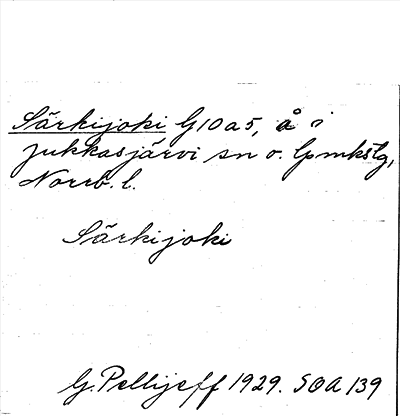 Särkijoki G10a5, å i
Jukkasjärvi sn o. lpmkstg,
Norrb. l.
Särkijoki
G. Pellijeff 1929. SOA 139